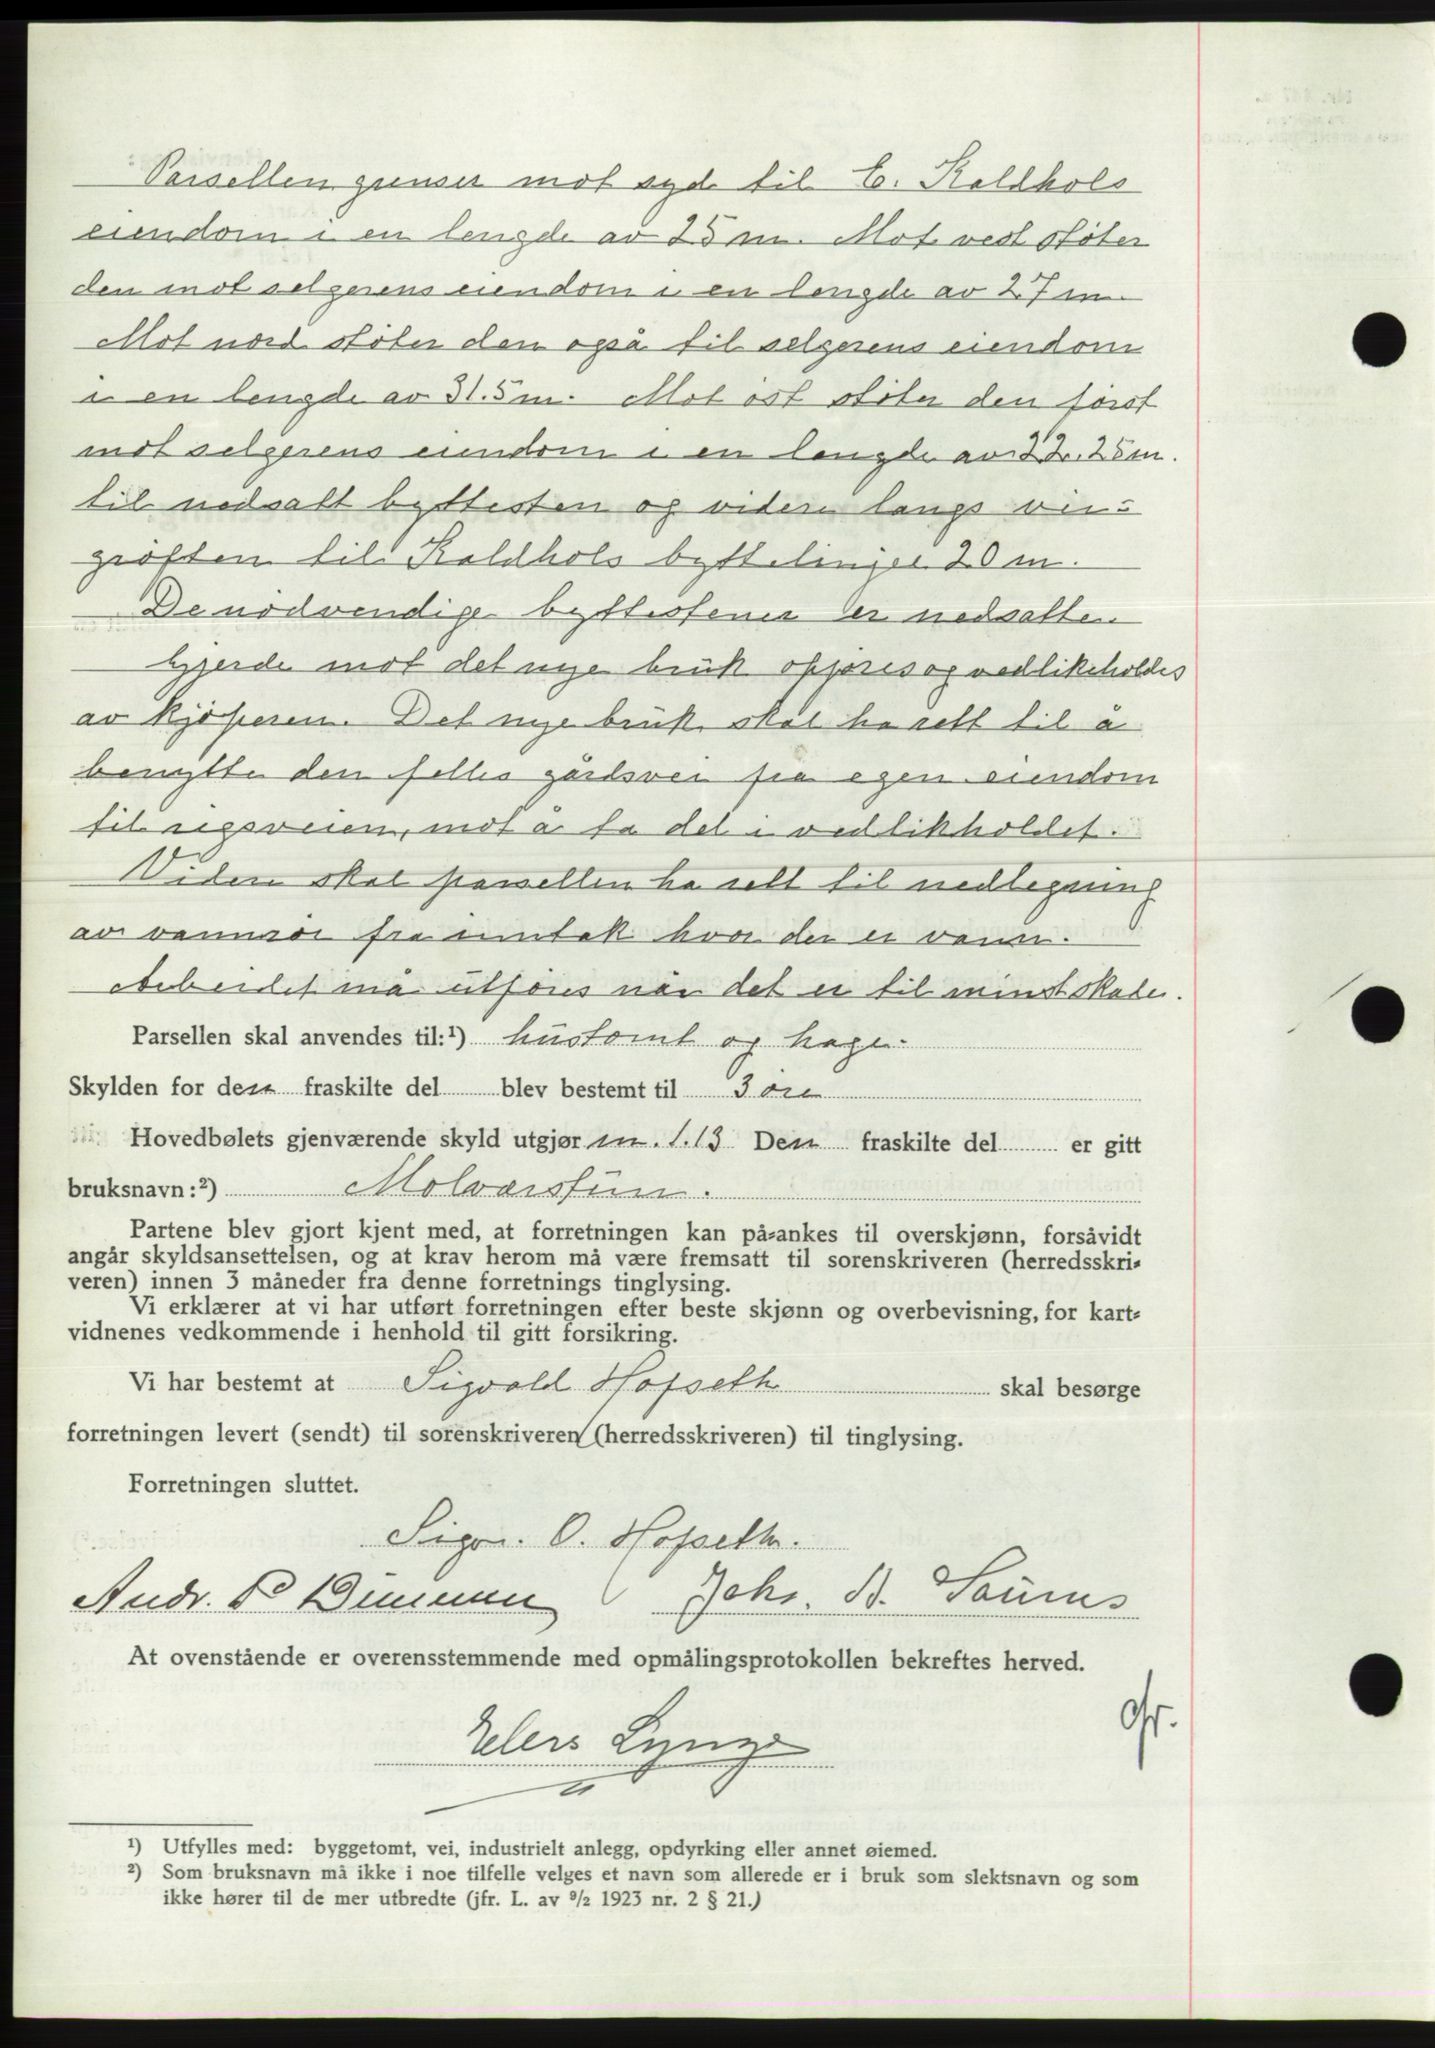 Parsellen grenser mot syd til E. Kaldhols
eiendom i en lengde av 25 m. Mot vest støter
den mot selgerens eiendom i en lengde av 27 m.
Mot nord støter den også til selgerens eiendom
i en lengde av 31.5 m. Mot øst støter den først
mot selgerens eiendom i en lengde av 22.25 m.
til nedsatt byttesten og videre langs vei=
grøften til Kaldhols byttelinje 20 m.
De nødvendige byttestener er nedsatte.
Gjerde mot det nye bruk opføres og vedlikeholdes
av kjøperen. Det nye bruk skal ha rett til å
benytte den felles gårdsvei fra egen eiendom
til rigsveien, mot å ta del i vedlikholdet.
Videre skal parsellen ha rett til nedlegning
av vannrør fra inntak hvor der er vann.
Arbeidet må utføres når det er til minst skade.
Parsellen skal anvendes til:¹) hustomt og hage.
Skylden for den fraskilte del blev bestemt til 3 øre
Hovedbølets gjenværende skyld utgjør m. 1.13 Den fraskilte del er gitt
bruksnavn:²) Molværstun.
Partene blev gjort kjent med, at forretningen kan på-ankes til overskjønn, forsåvidt
angår skyldsansettelsen, og at krav herom må være fremsatt til sorenskriveren (herredsskri-
veren) innen 3 måneder fra denne forretnings tinglysing.
Vi erklærer at vi har utført forretningen efter beste skjønn og overbevisning, for kart-
vidnenes vedkommende i henhold til gitt forsikring.
Vi har bestemt at Sigvald Hofseth skal besørge
forretningen levert (sendt) til sorenskriveren (herredsskriveren) til tinglysing.
Forretningen sluttet.
Sigv. O. Hofseth.
Andr. P Dimmen Johs. B. Saunes
At ovenstående er overensstemmende med opmålingsprotokollen bekreftes herved.
Elers Lynge
¹) Utfylles med: byggetomt, vei, industrielt anlegg, opdyrking eller annet øiemed.
²) Som bruksnavn må ikke i noe tilfelle velges et navn som allerede er i bruk som slektsnavn og som
ikke hører til de mer utbredte (jfr. L. av ⁹/₂ 1923 nr. 2 § 21.)